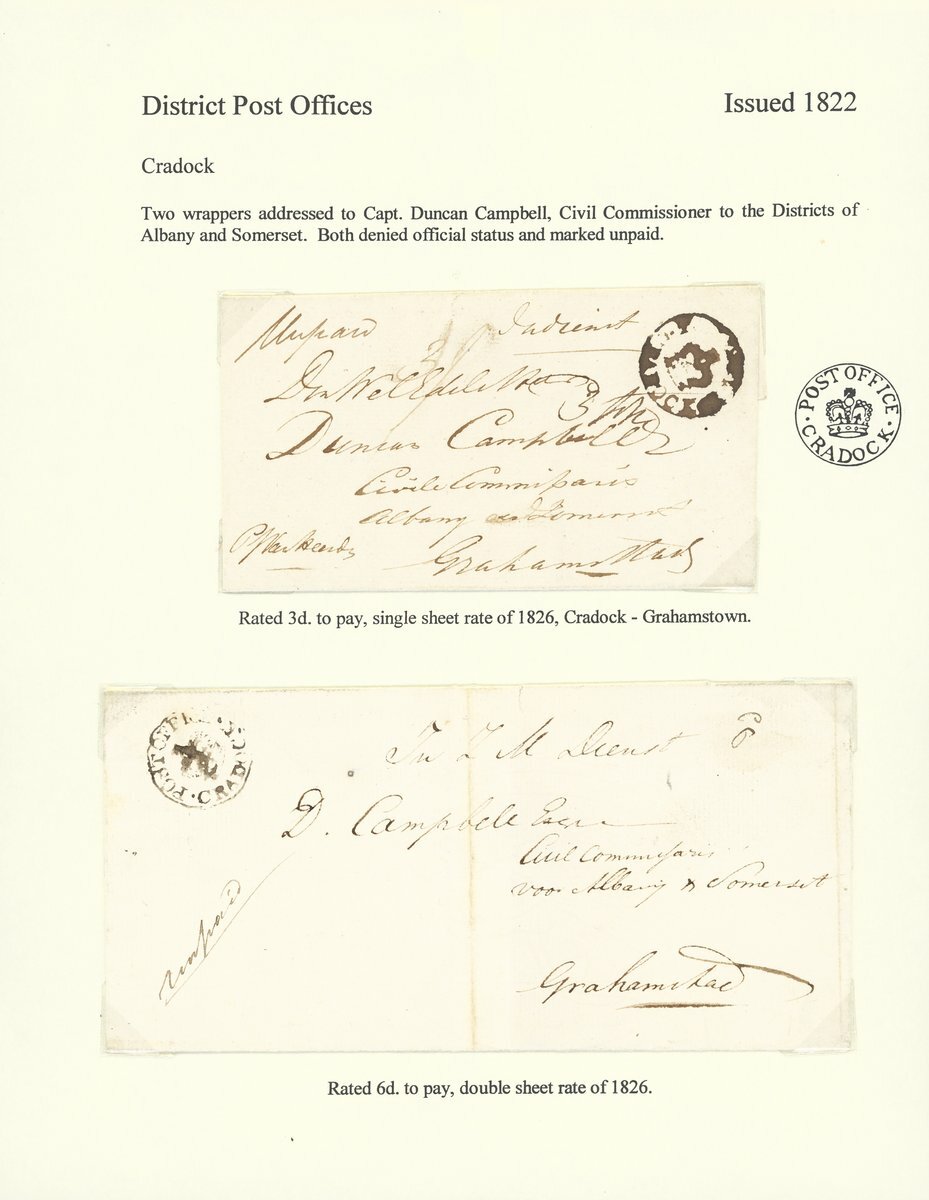 District Post Offices
Issued 1822
Cradock
Two wrappers addressed to Capt. Duncan Campbell, Civil Commissioner to the Districts of
Albany and Somerset. Both denied official status and marked unpaid.
Unpaid
In dienst
Den Wel Edele
3
Duncan Campbell
Civile Commissaris
Albany Somerset
Grahamstad
OCK
POST OFFICE
CRADOCK
Rated 3d. to pay, single sheet rate of 1826, Cradock - Grahamstown.
POST OFFI
CRADOCK
In Z M Dienst
6
D. Campbell Esqr
Civil Commissaris
voor Albany & Somerset
unpaid
Grahamstad
Rated 6d. to pay, double sheet rate of 1826.